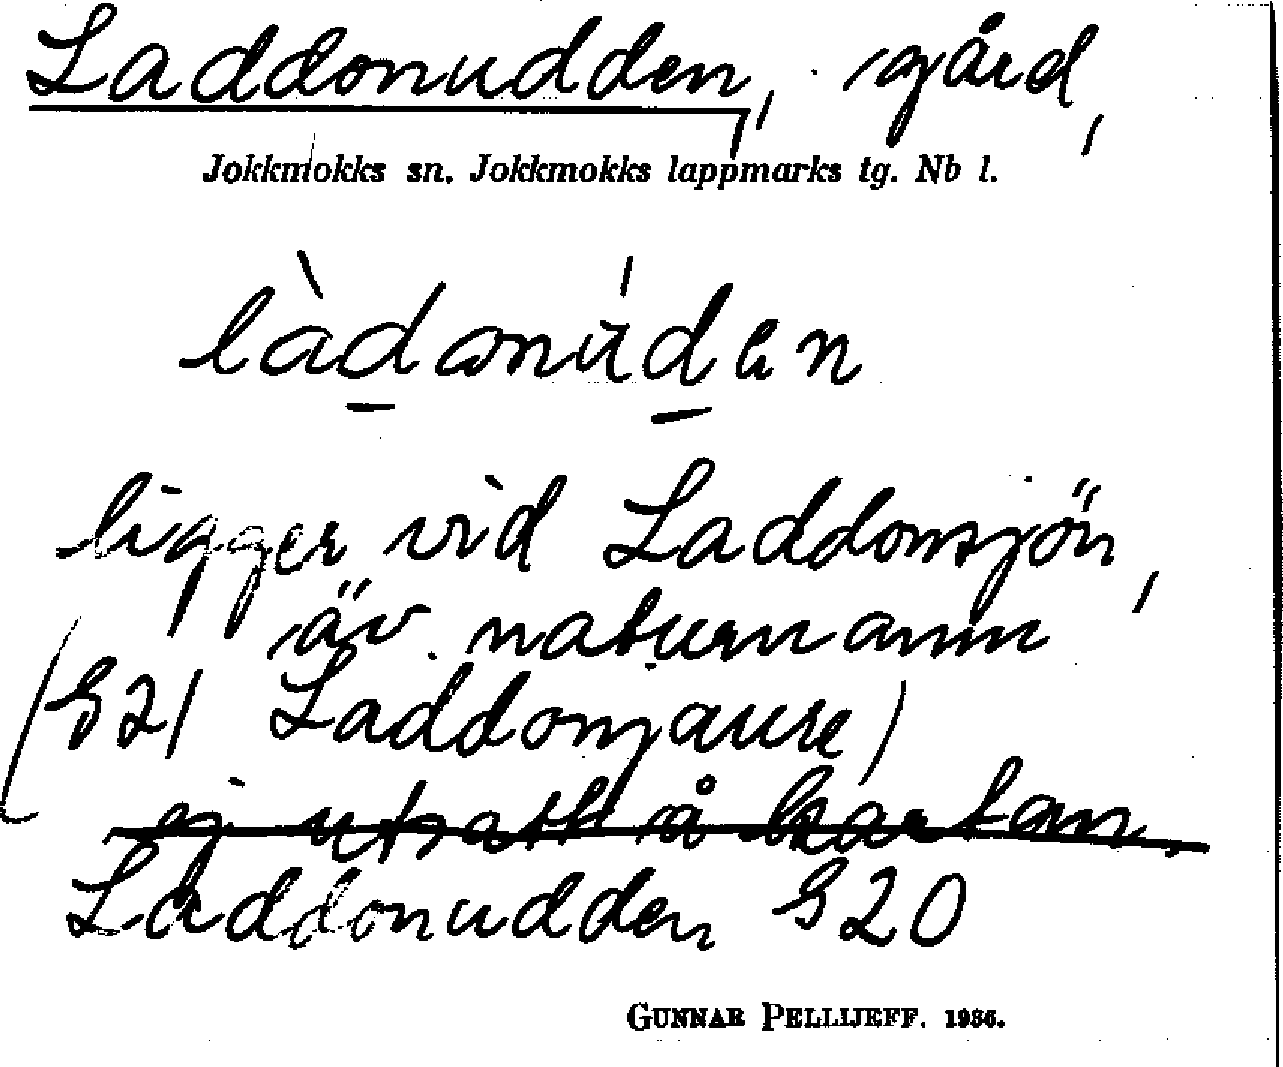 Laddonudden, gård,
Jokkmokks sn. Jokkmokks lappmarks tg. Nb l.
làdonúden
ligger vid Laddonsjön,
äv. naturnamn
(G21 Laddonjaure)
ej utsatt å kartan.
Laddonudden G20
GUNNAR PELLIJEFF. 1936.